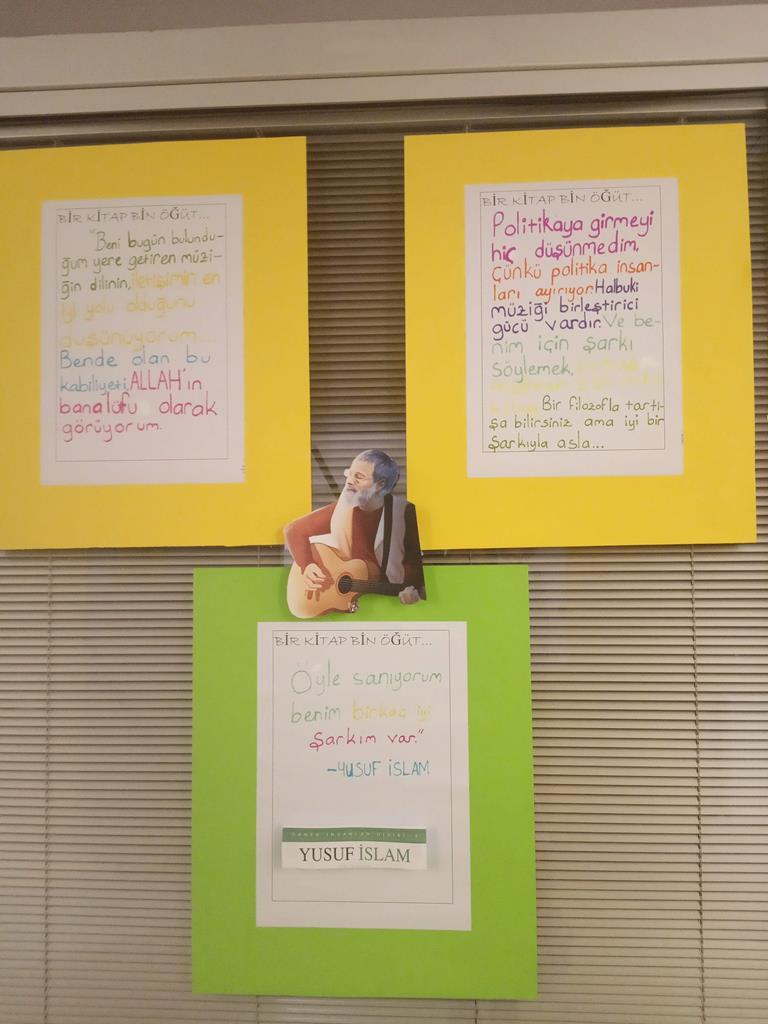 BİR KİTAP BİN ÖĞÜT...
"Beni bugün bulundu-
ğum yere getiren müzi-
ğin dilinin, iletişimin en
iyi yolu olduğunu
düşünüyorum...
Bende olan bu
kabiliyeti, ALLAH'ın
bana lütfu olarak
görüyorum.
BİR KİTAP BİN ÖĞÜT...
Politikaya girmeyi
hiç düşünmedim,
çünkü politika insan-
ları ayırıyor. Halbuki
müziği birleştirici
gücü vardır. Ve be-
nim için şarkı
söylemek,
Bir filozofla tartı-
şa bilirsiniz ama iyi bir
şarkıyla asla...
BİR KİTAP BİN ÖĞÜT...
Öyle sanıyorum
benim birkaç iyi
şarkım var."
-YUSUF İSLAM
YUSUF İSLAM